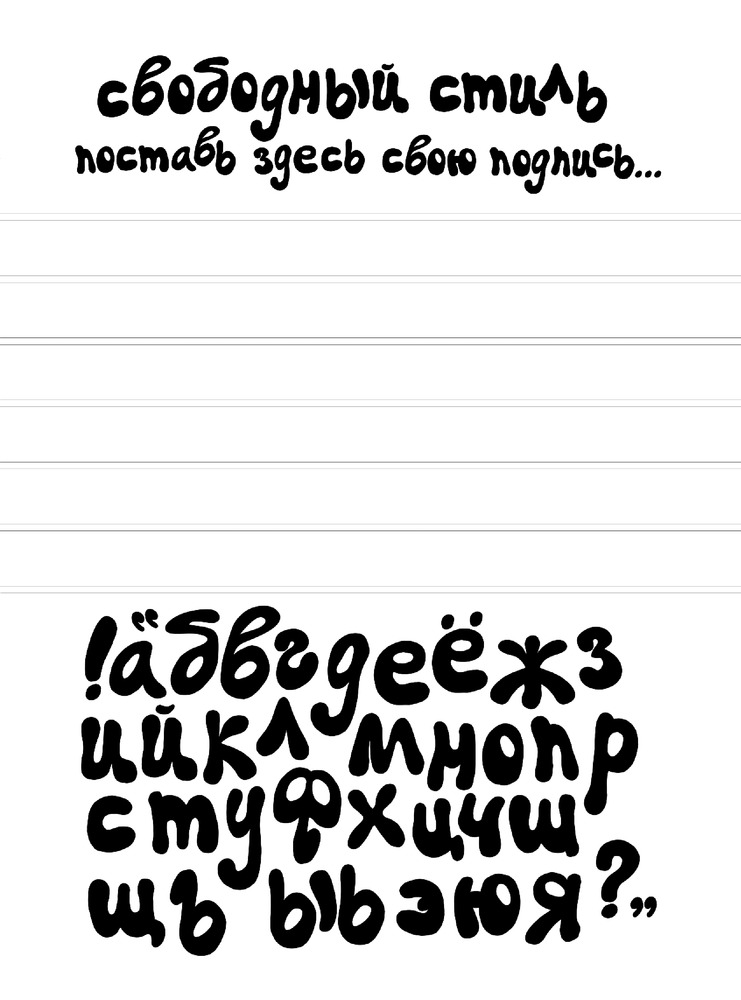 свободный стиль
поставь здесь свою подпись...
!“абвгдеёжз
ийклмнопр
стуфхцчш
щъ ыьэюя?”